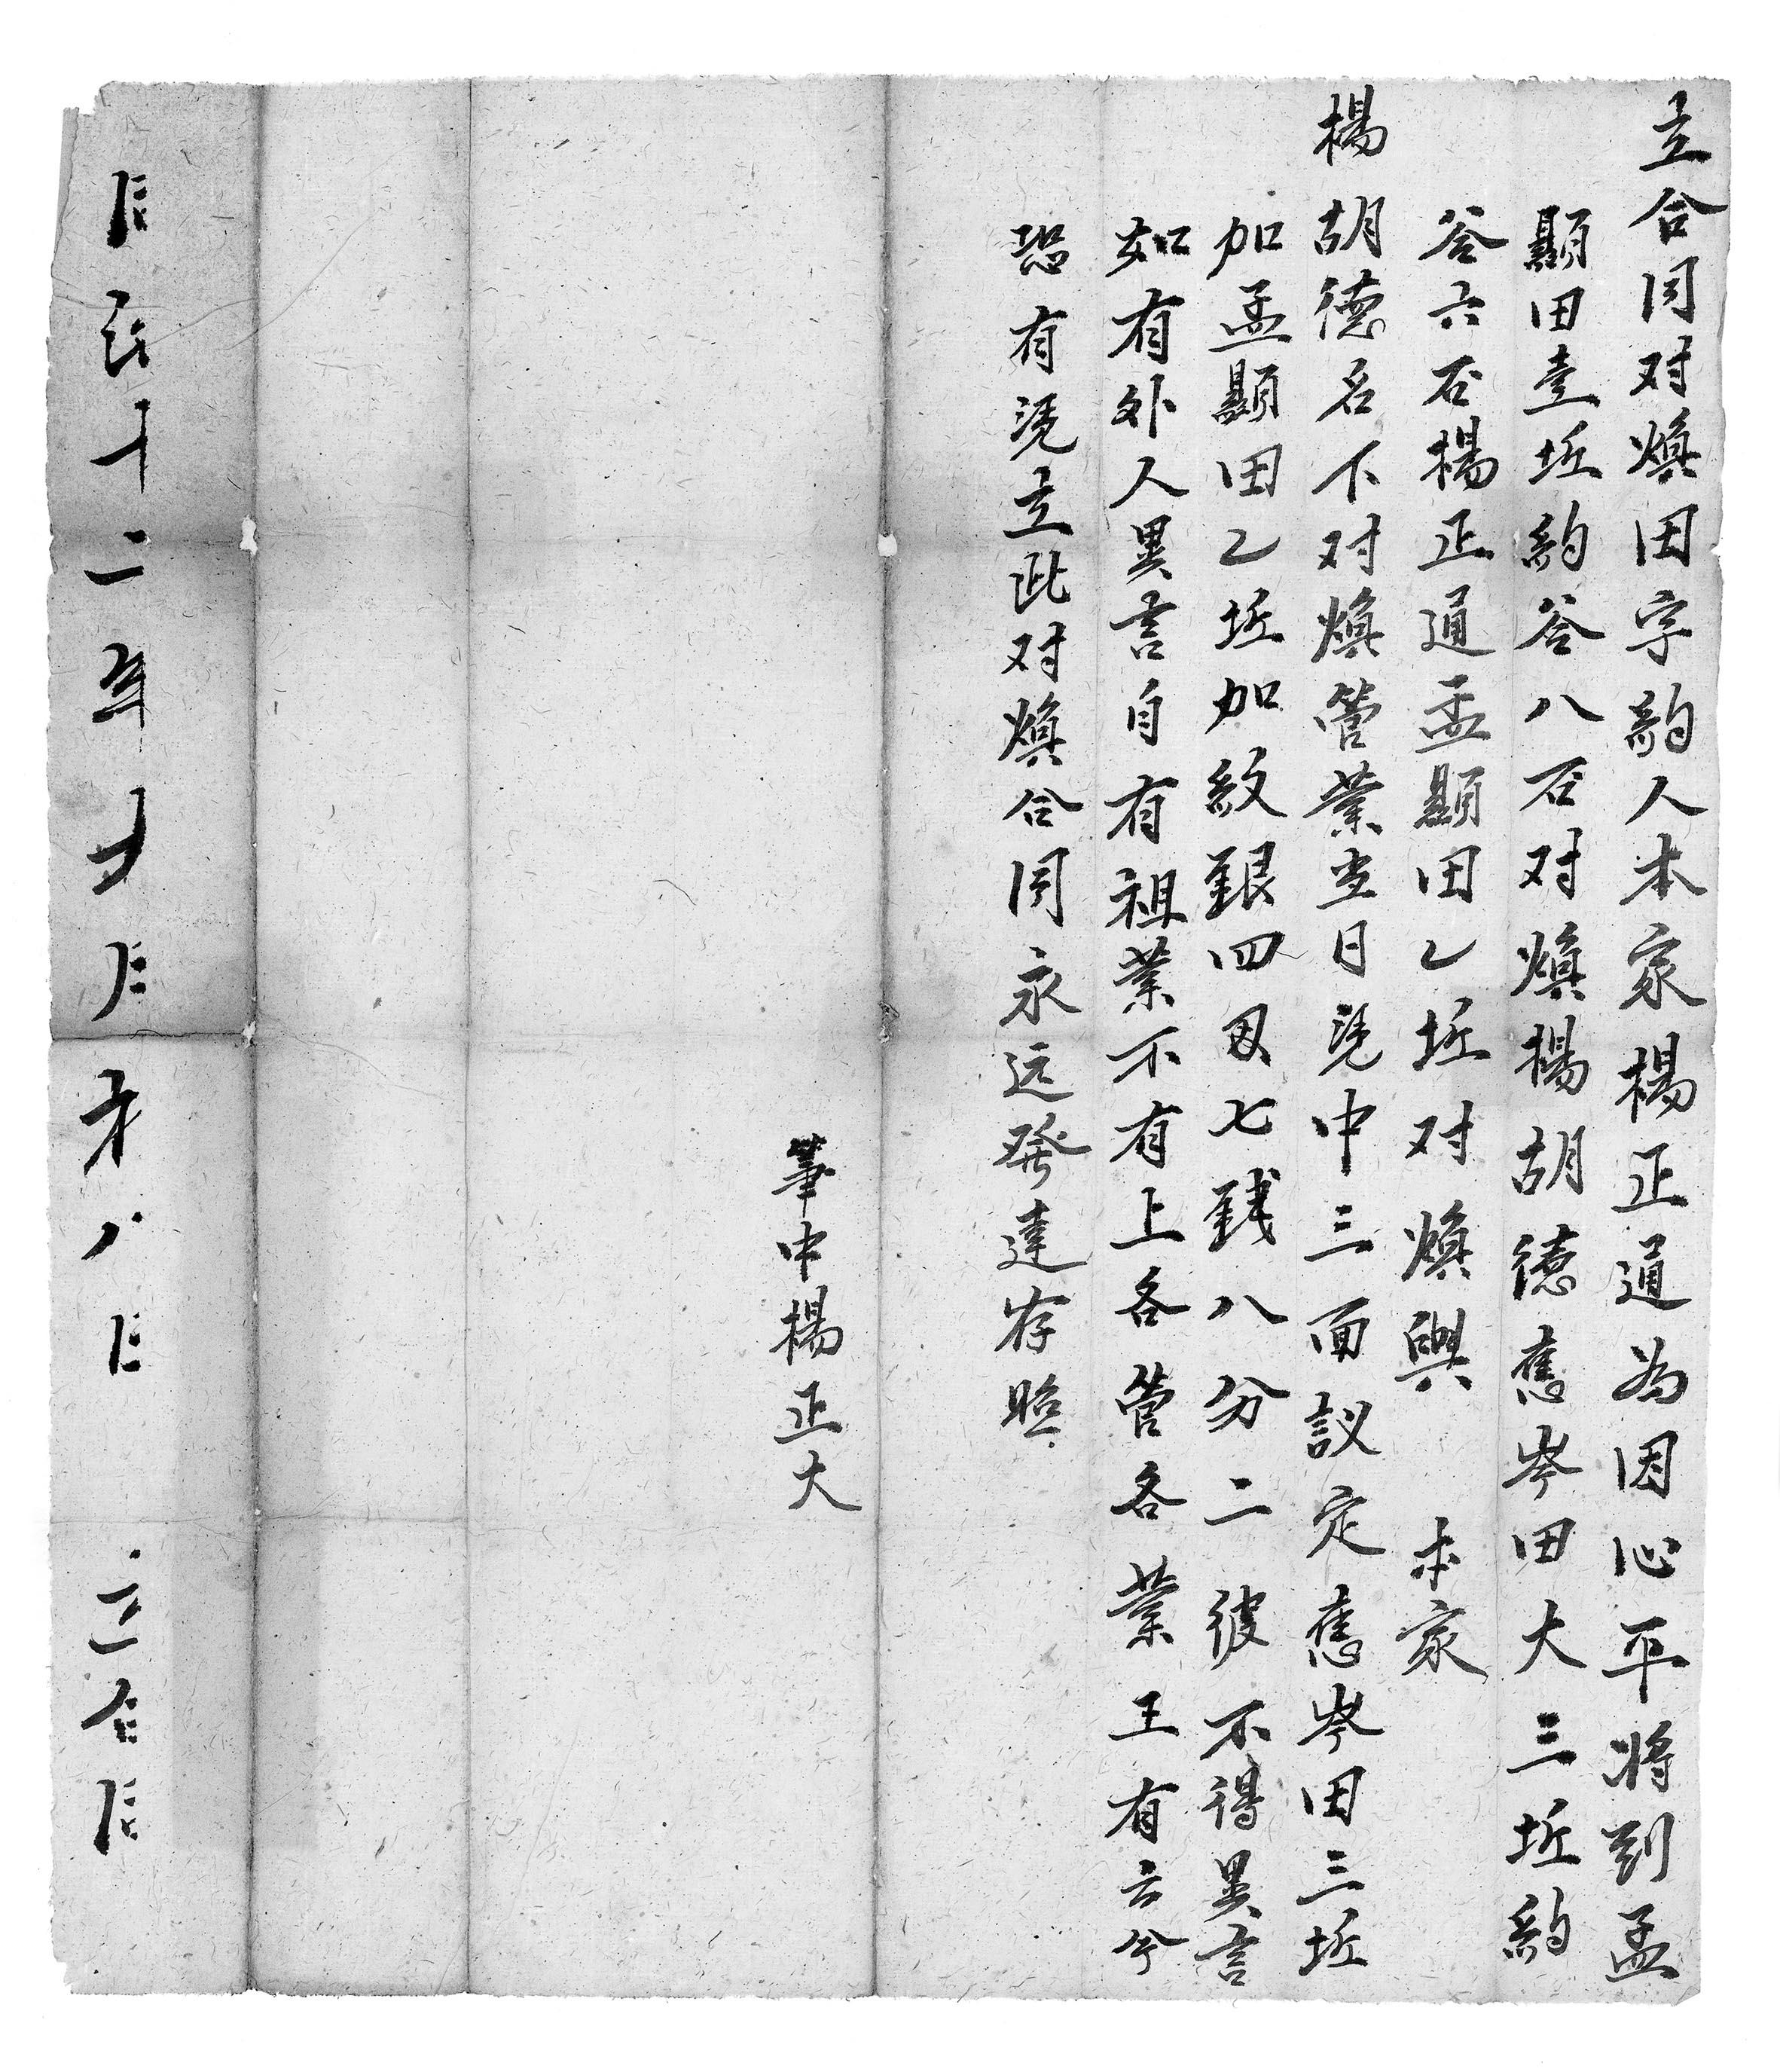 立合同对煥田字約人本家楊正通為因心平将到孟
顯田壹坵約谷八石对煥楊胡德舊岑田大三坵約
谷六石楊正通孟顯田乙坵对煥與 本家
楊胡德名下对煥管業当日凭中三面議定舊岑田三坵
加孟顯田乙坵加紋銀四両七錢八分二彼不得異言
如有外人異言自有祖業不有上各管各業王有言兮
恐有凭立此对煥合同永远發達存照
筆中楊正大
十二年 月 八